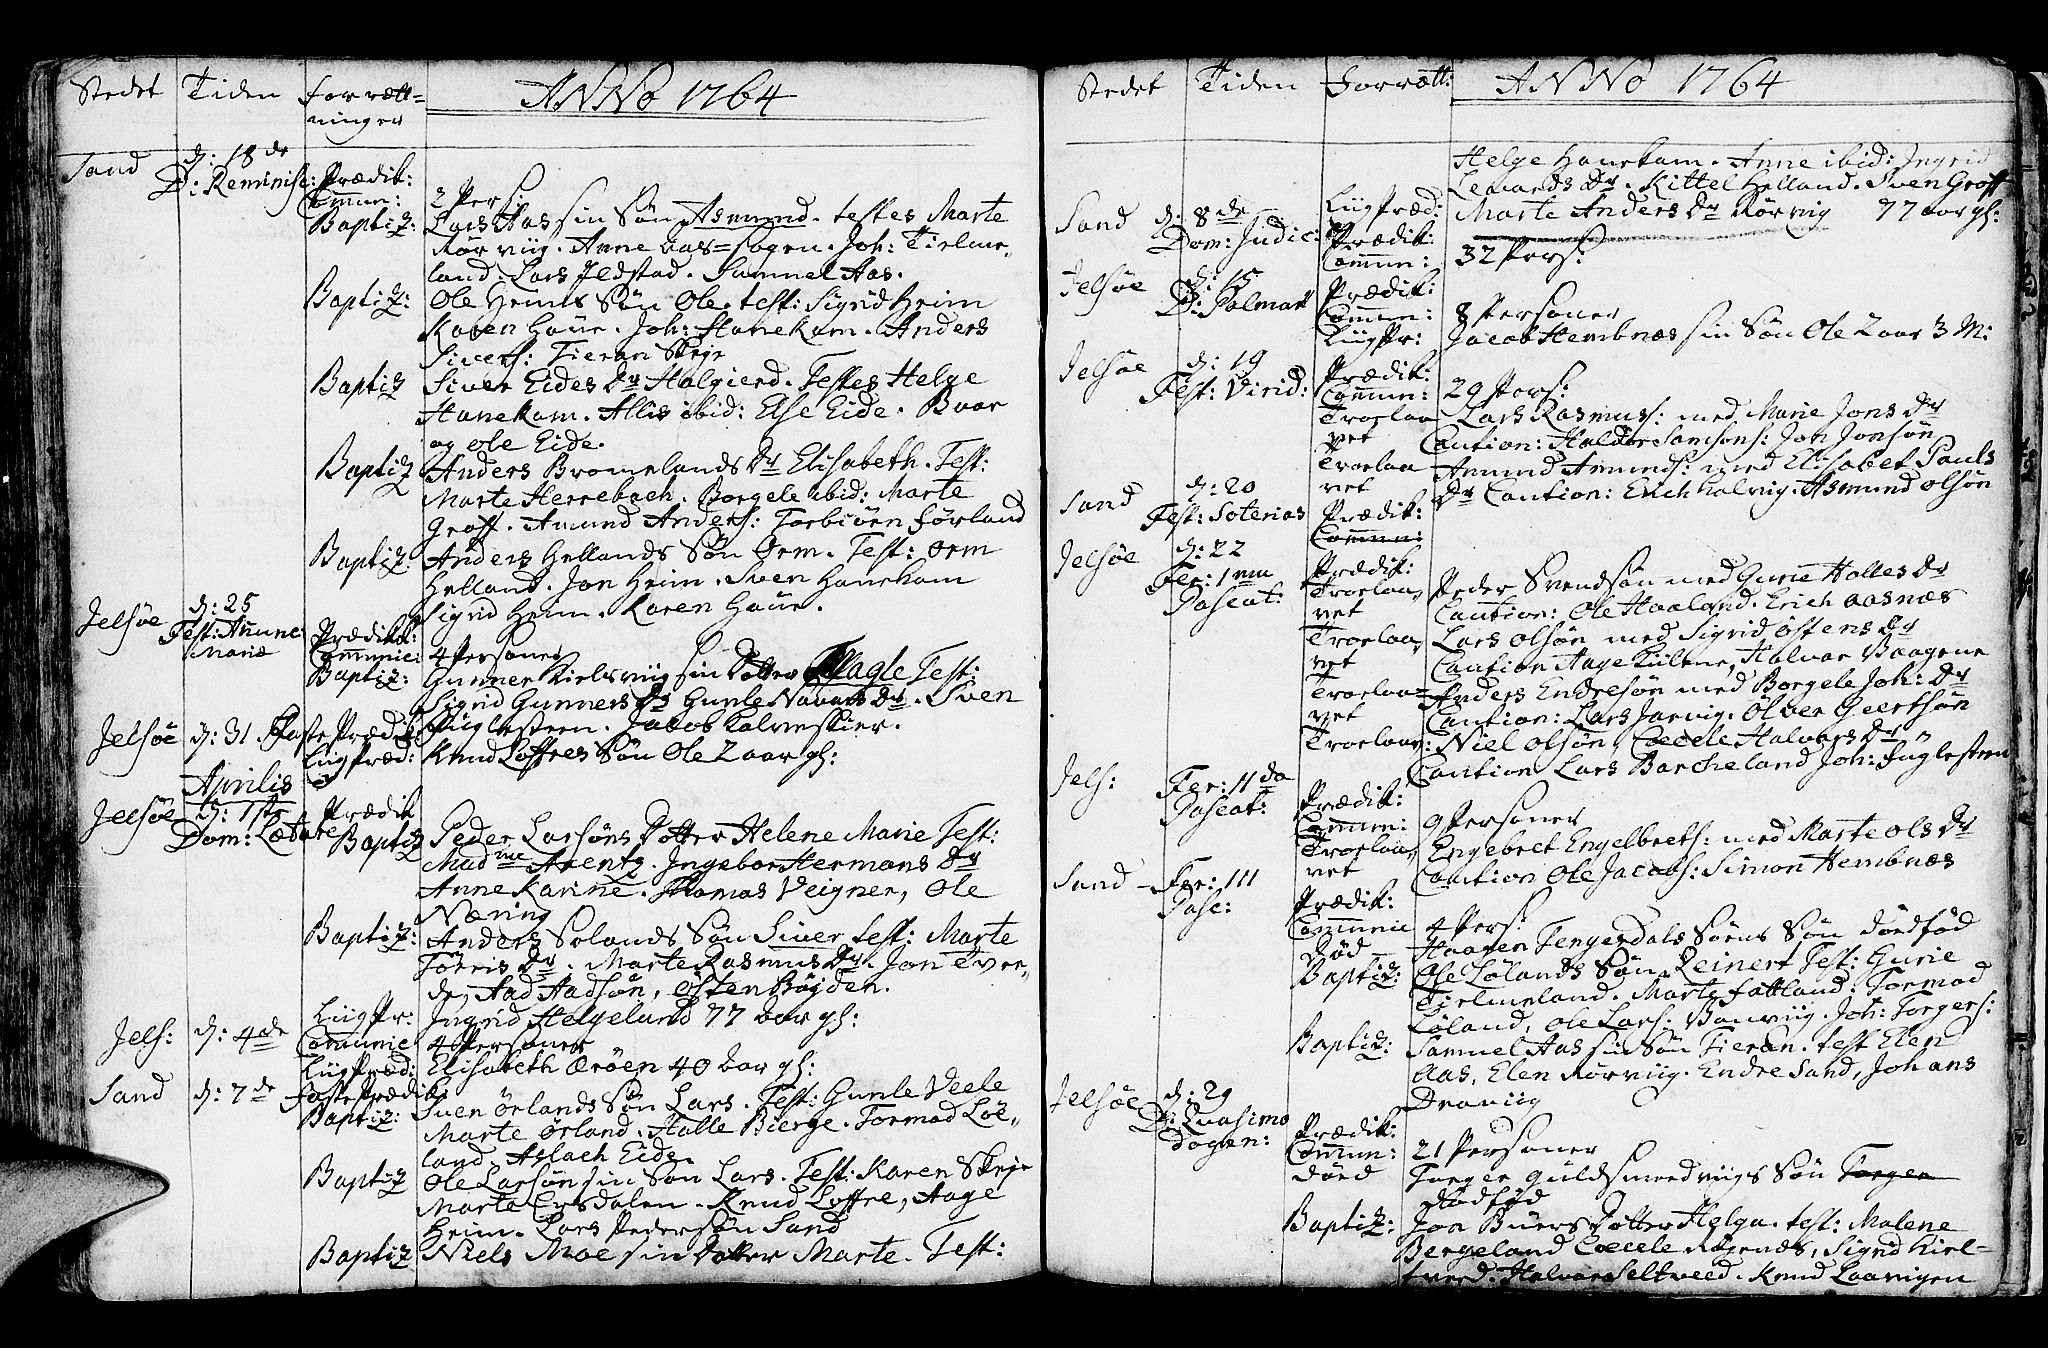 Stedet Tiden Forrætt=
ninger
ANNO 1764
Sand d: 18de
D: Reminisc: Prædik:
Comun: 3 Pers:
Baptiz: Lars Aas sin Søn Asmund. testes Marte
Rørviig. Anne Aas=Hagen. Joh: Tielme„
land. Lars Jelstad. Samuel Aas.
Baptiz: Ole Heims Søn Ole. test: Sigrid Heim
Karen Haue. Joh: Hanekam. Anders
Sivers: Fieran Skeje
Baptiz Siver Eides Dr Halgierd. Testes Helge
Hanekam. Allis ibid: Else Eide. Baar
og Ole Eide.
Baptiz Anders Bromelands Dr Elisabeth. Test:
Marte Herrebach. Borgele ibid: Marte
Groff. Amund Anders: Torbiøen Førland
Baptiz: Anders Hellands Søn Orm. Test: Orm
Helland. Jon Heim. Sven Hanekam
Sigrid Heim. Karen Haue.
Jelsøe d: 25
Fest: Annunc
Mariæ Prædik:
Communic: 4 Personer
Baptiz: Gunner Kielsviig sin Dotter Magle Test:
Sigrid Gunners Dr Gunle Navars Dr. Sven
Fuglesteen. Jacob Kalveskier.
Jelsøe d: 31. Faste Prædik:
Liig Præd: Knud Løffres Søn Ole 2 aar gl:
Aprilis
Jelsøe d: 1ste
Dom: Lætare Prædik
Baptiz Peder Larsøns Dotter Helene Marie Test:
Madme Arentz. Ingebor Hermans Dr
Anne Karine. Thomas Veigner, Ole
Næring
Baptiz: Anders Solands Søn Siver test: Marte
Torris Dr. Marte Rasmus Dr. Jon Tver„
de, Aad Aadsøn, Osten Bøjden.
Liig Pr: Ingrid Helgeland 77 aar gl:
Jels: d: 4de Communic 4 Personer
Liig Præd: Elisabeth Ærøen 40 aar gl:
Sand d: 7de Faste Prædik:
Baptiz: Sven Ørlands Søn Lars. Test: Gunle Veele
Marte Ørland. Halle Bierge. Tormod Løe„
land. Aslach Eide.
Baptiz Ole Larsøn sin Søn Lars. Test: Karen Skeje
Marte Ersdalen. Knud Løffre, Aage
Heim. Lars Pedersøn Sand
Baptiz Niels Moe sin Dotter Marte. Test:
Stedet Tiden Forrætt:
ANNO 1764
Helge Hanekam. Anne ibid: Ingrid
Levards Dr. Kittel Helland. Sven Groff
Sand d: 8de
Dom: Judic: Liig Præd: Marte Anders Dr Rørviig 77 aar gl:
Prædik:
Comun: 32 Pers:
Jelsøe d: 15
D: Palmar Prædik:
Comun: 8 Personer
Liig Pr: Jacob Hembnæs sin Søn Ole 2 aar 3 M:
Jelsøe d: 19
Fest: Virid: Prædik:
Comun: 29 Pers:
Troelaa
vet Lars Rasmus: med Marie Jons Dr
Caution: Haldor Samsons: Jon Jonsøn
Troelaa
vet Amund Amunds: med Elisabet Pauls
Dr Caution: Erich Halvig. Asmund Olsøn
Sand d: 20
Fest: Soterias Prædik:
Comun:
Jelsøe d: 22
Fer: 1ma
Pascat: Prædik:
Troelaa„
vet Peder Svendsøn med Gurie Halles Dr
Caution: Ole Haaland. Erich Aasnæs
Troelaa„
vet Lars Olsøn med Sigrid Østens Dr
Caution Aage Tulene, Halvar Vaagene
Troelaa=
vet Anders Endresøn med Borgele Joh: Dr
Caution: Lars Jarvig. Olver Geertsøn
Troelaav: Niel Olsøn, Cecele Halvars Dr
Caution Lars Barcheland Joh: Fuglesteen
Jels: Fer: 11da
Pascat: Prædik:
Comun: 9 Personer
Troelaa„
vet Engebret Engelbrets: med Marte Ols Dr
Caution Ole Jacobs: Simon Hembnæs
Sand – Fer: 111
Pasc: Prædik:
Communic 4 Pers:
Død Haagen Tengesdals Søns Søn dødfød
Baptiz: Ole Lølands Søn Reinert Test: Gurie
Tielmeland. Marte Fatland. Tormod
Løland, Ole Lars: Vanviig. Joh: Torgers:
Baptiz: Samuel Aas sin Søn Fieran. test Elen
Aas, Elen Rørviig. Endre Sand, Johans
Draviig
Jelsøe d: 29
D: Quasimo
dogen: Prædik:
Comun: 21 Personer
Død Torger Guldsmedviigs Søn Torger
dødfød
Baptiz: Jon Buers Dotter Helga. test: Malene
Bergeland Cecele Røgenæs, Sigrid Kiel=
tveed. Halvar Seltveed. Knud Laavigen